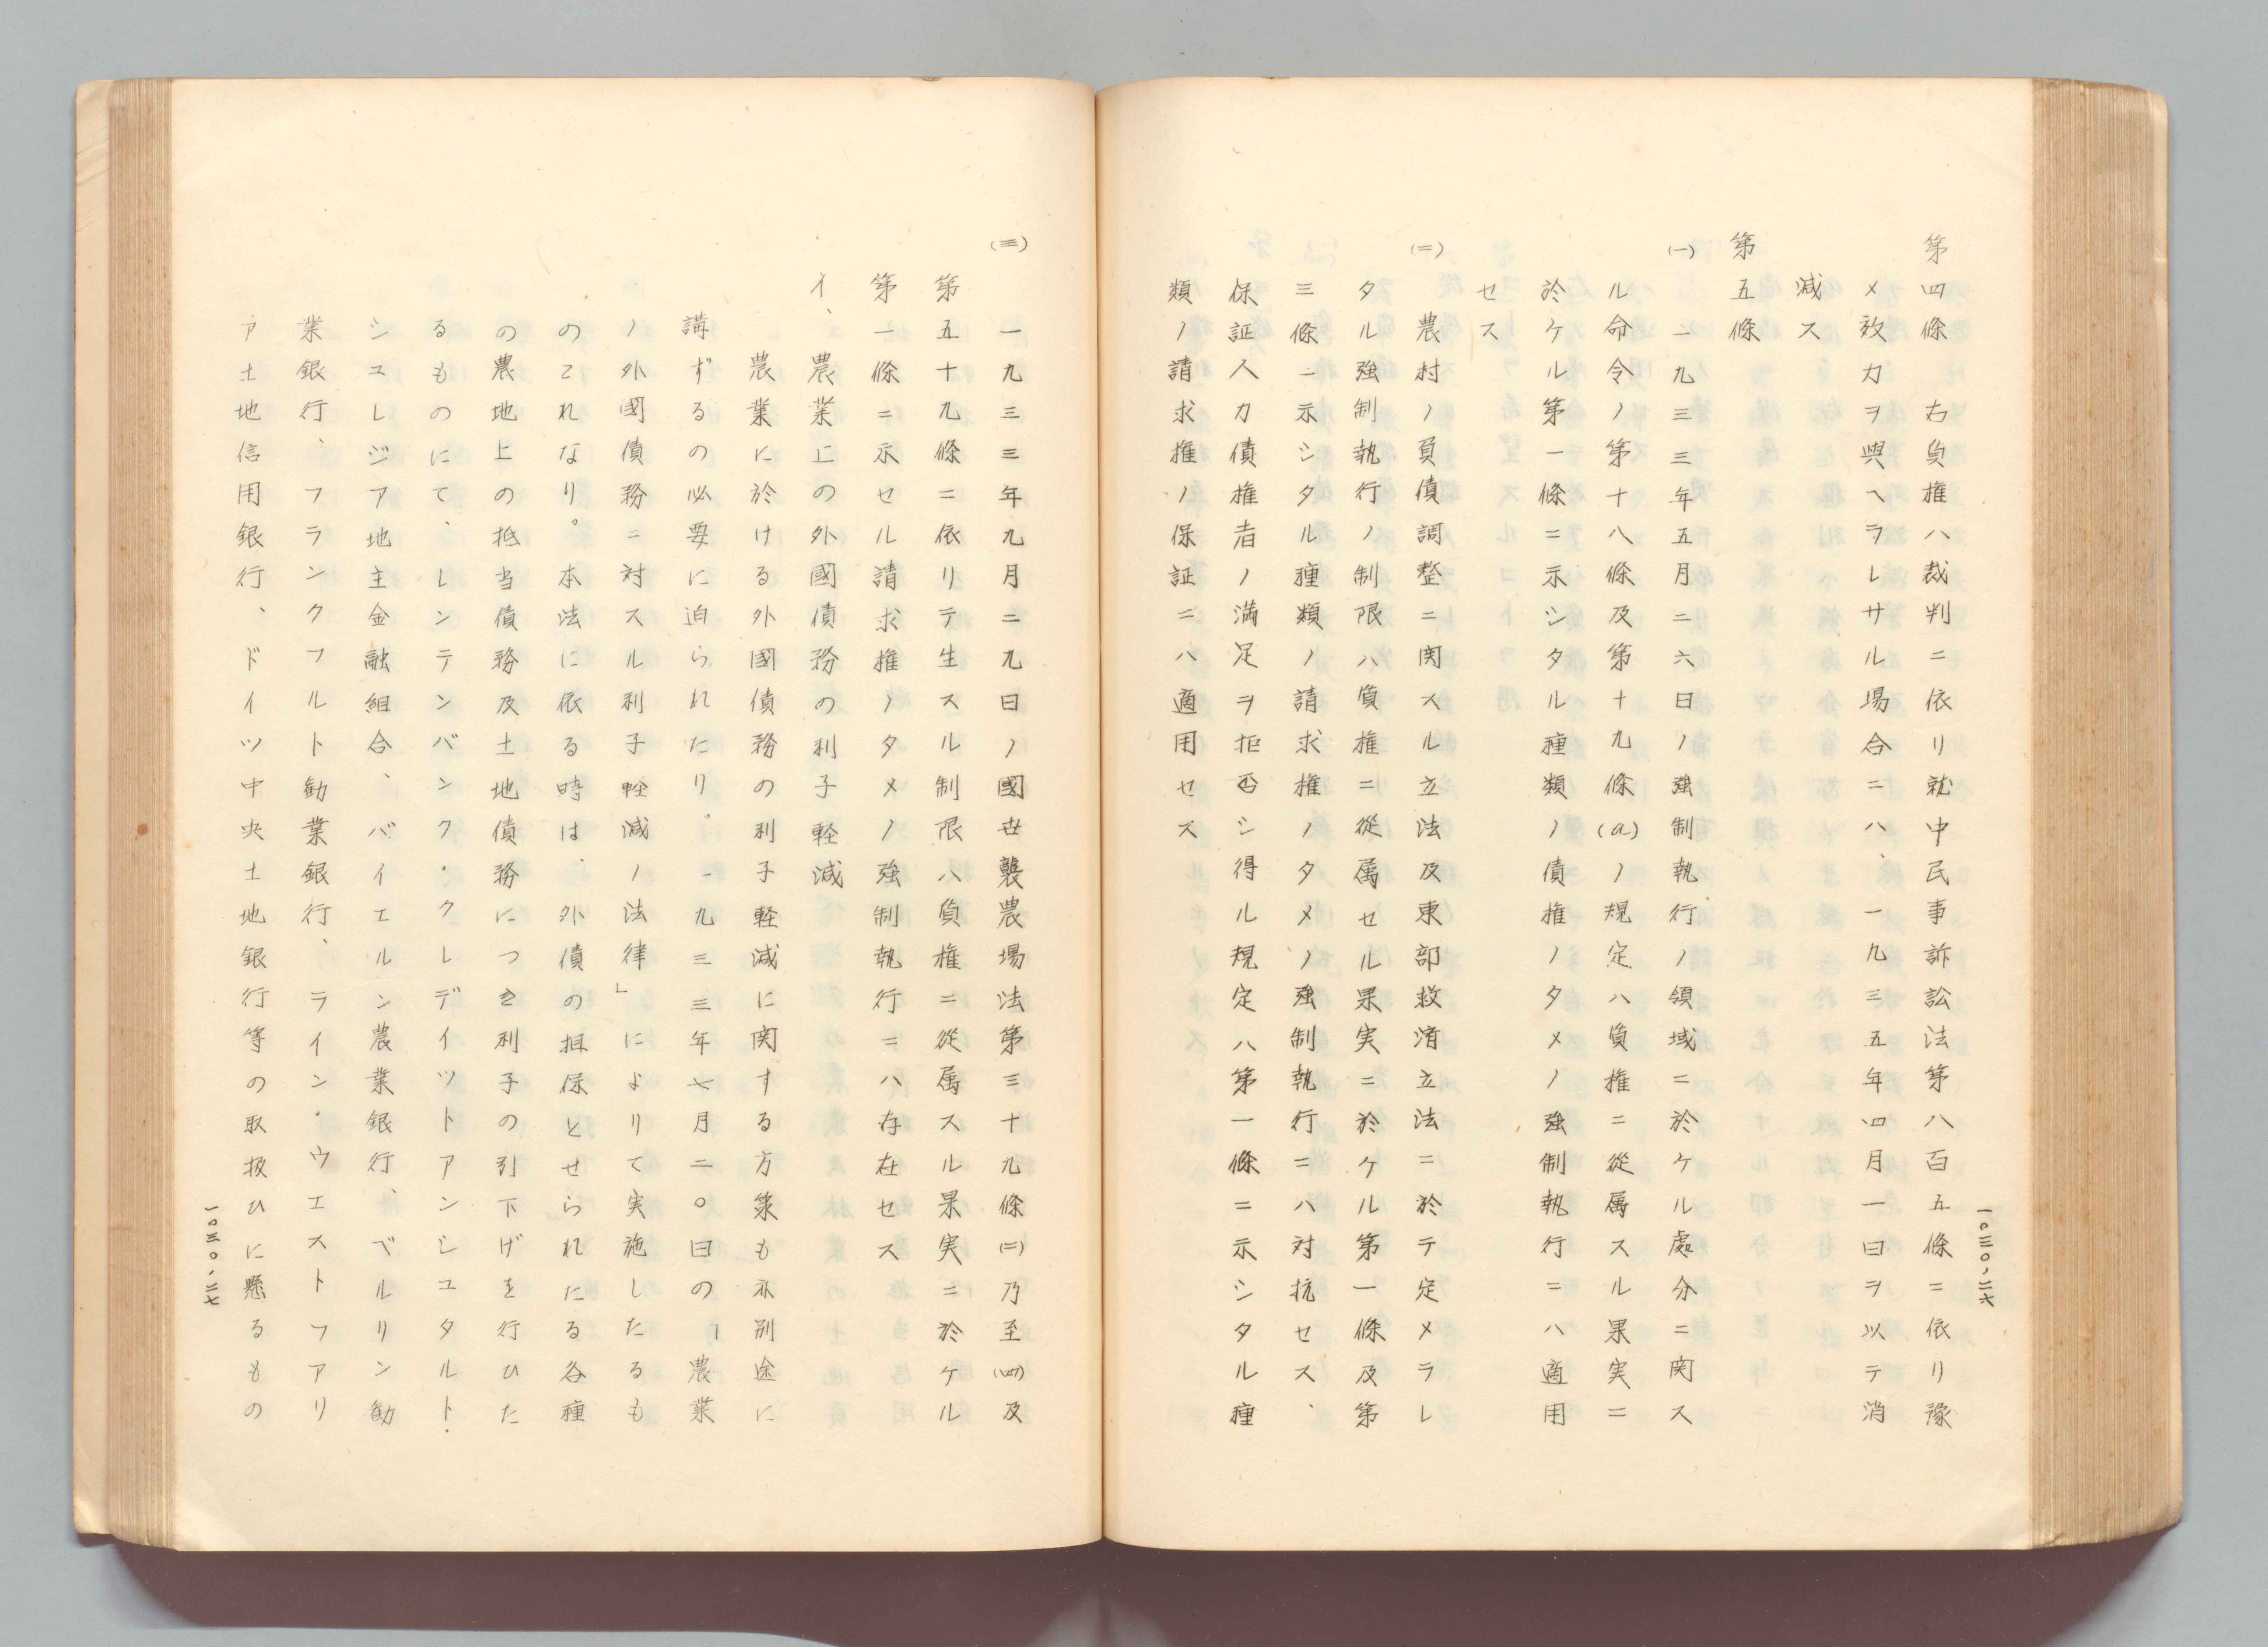 第四條　右負権ハ裁判ニ依リ就中民事訴訟法第八百五條ニ依リ豫
メ效力ヲ與ヘヲレサル場合ニハ、一九三五年四月一日ヲ以テ消
滅ス
第五條
(一)　一九三三年五月二六日ノ強制執行ノ領域ニ於ケル處分ニ関ス
ル命令ノ第十八條及第十九條(a)ノ規定ハ負権ニ從属スル果実ニ
於ケル第一條ニ示シタル種類ノ債権ノタメノ強制執行ニハ適用
セス
(二)　農村ノ負債調整ニ関スル立法及東部救済立法ニ於テ定メラレ
タル強制執行ノ制限ハ負権ニ從属セル果実ニ於ケル第一條及第
三條ニ示シタル種類ノ請求権ノタメノ強制執行ニハ対抗セス、
保証人カ債権者ノ満足ヲ拒否シ得ル規定ハ第一條ニ示シタル種
類ノ請求権ノ保証ニハ適用セズ
一〇三〇、二六
(三)　一九三三年九月二九日ノ國世襲農場法第三十九條(二)乃至(四)及
第五十九條ニ依リテ生スル制限ハ負権ニ從属スル果実ニ於ケル
第一條ニ示セル請求権ノタメノ強制執行ニハ存在セス
イ、農業上の外國債務の利子軽減
農業に於ける外國債務の利子軽減に関する方策も亦別途に
講ずるの必要に迫られたり。一九三三年七月二〇日の「農業
ノ外國債務ニ対スル利子軽減ノ法律」によりて実施したるも
のこれなり。本法に依る時は、外債の担保とせられたる各種
の農地上の抵当債務及土地債務につき利子の引下げを行ひた
るものにて、レンテンバンク・クレデイツトアンシユタルト・
シユレジア地主金融組合、バイエルン農業銀行、ベルリン勧
業銀行、フランクフルト勧業銀行、ライン・ウエストフアリ
ア土地信用銀行、ドイツ中央土地銀行等の取扱ひに懸るもの
一〇三〇、二七